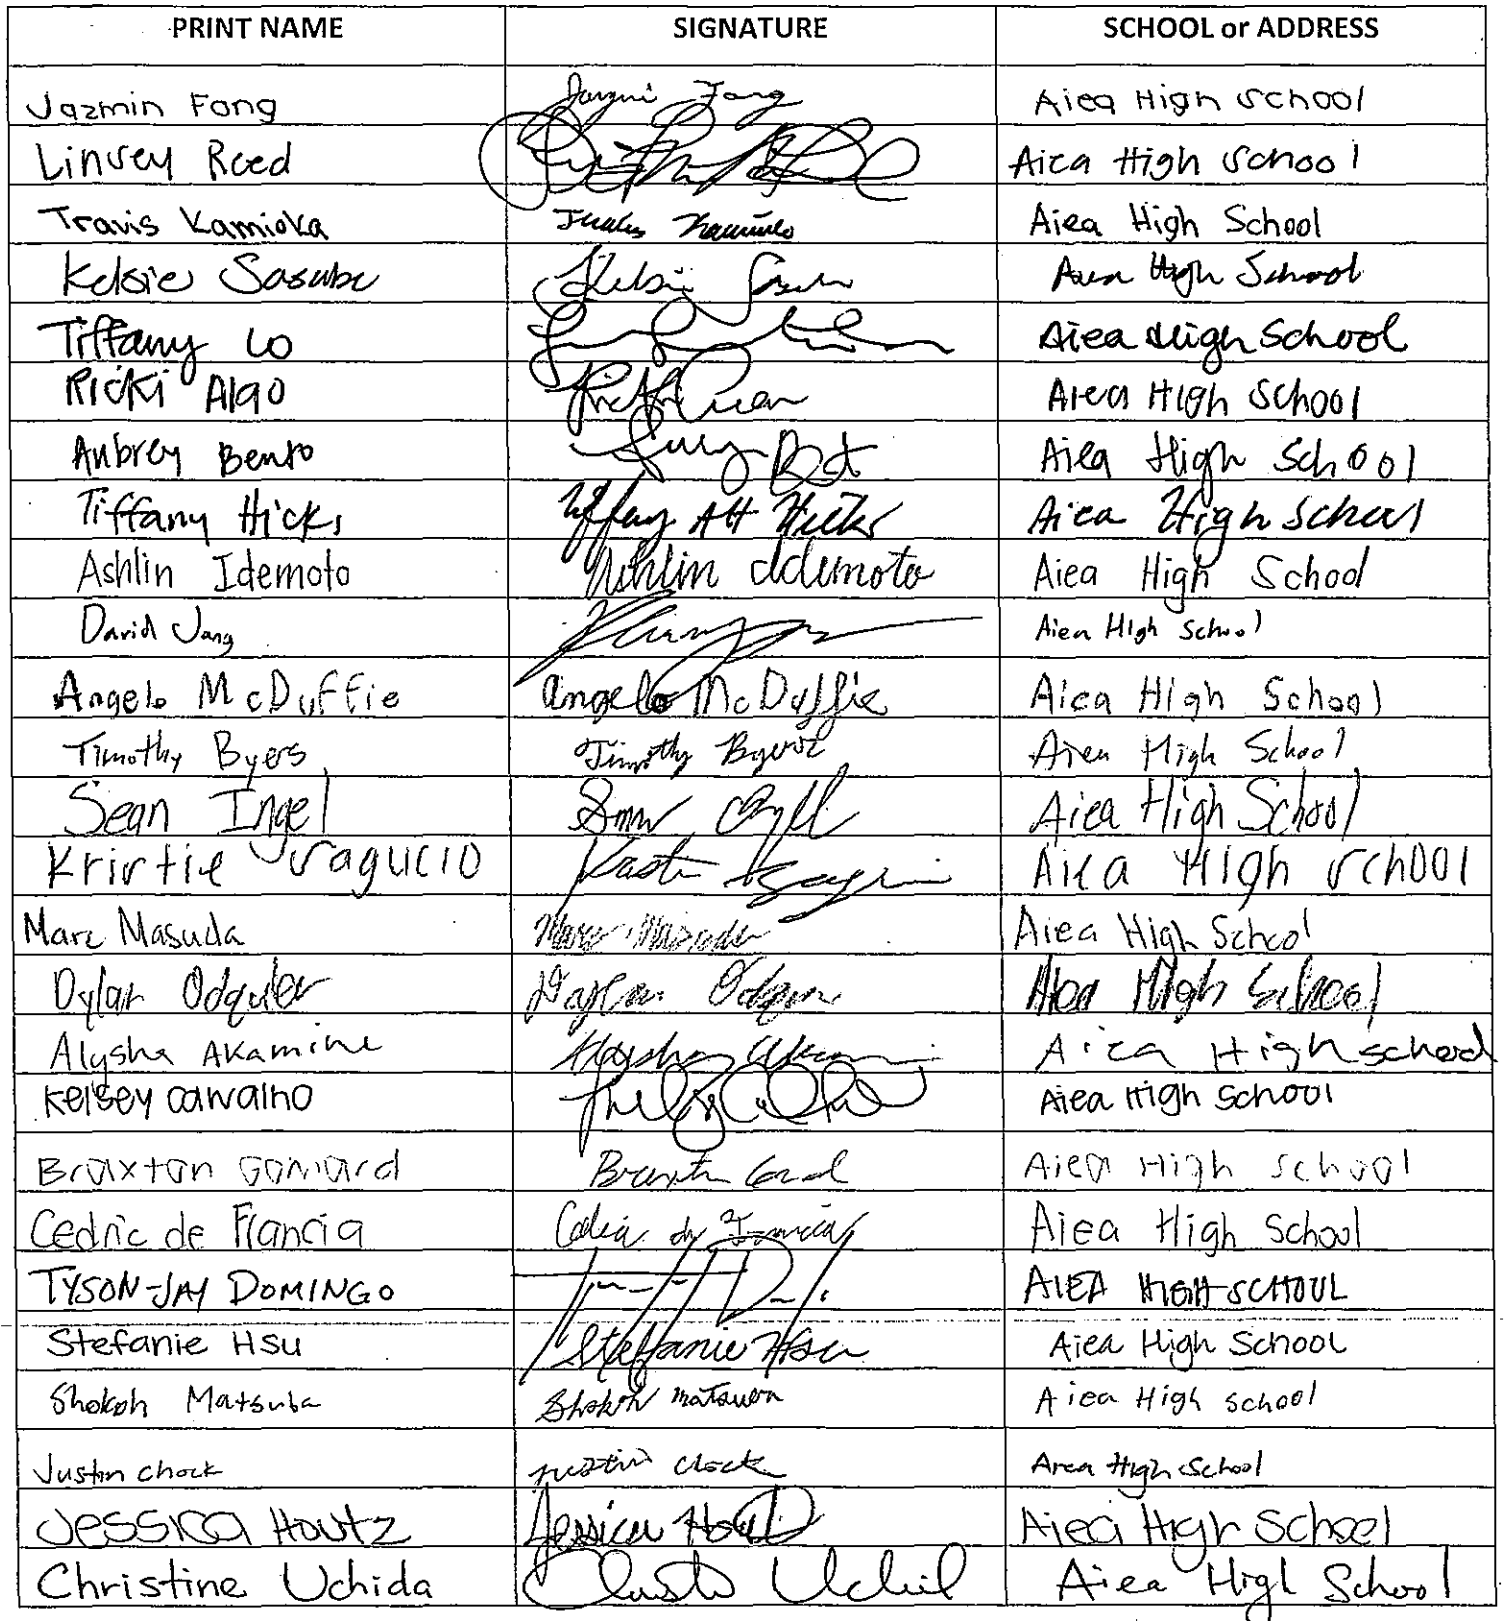 PRINT NAME SIGNATURE SCHOOL or ADDRESS
Jazmin Fong Jazmin Fong Aiea High School
Linsey Reed Aiea High School
Travis Kamioka Travis Kamioka Aiea High School
Kelsie Sasubu Kelsie Aiea High School
Tiffany Lo Aiea High School
Ricki Algo Aiea High School
Aubrey Bento Aiea High School
Tiffany Hicks Tiffany AH Hicks Aiea High School
Ashlin Idemoto Ashlin Idemoto Aiea High School
David Jang Aiea High School
Angelo McDuffie Angelo McDuffie Aiea High School
Timothy Byers Timothy Byers Aiea High School
Sean Ingel Aiea High School
Kristie Sagucio Aiea High School
Marc Masuda Marc Masuda Aiea High School
Dylan Aiea High School
Alysha Akamine Alysha Aiea High School
Kelsey Carvalho Aiea High School
Braxton Aiea High School
Cedric de Francia Cedric de Francia Aiea High School
TYSON-JAY DOMINGO AIEA HIGH SCHOOL
Stefanie Hsu Stefanie Hsu Aiea High School
Shokoh Matsuba Shokoh Matsuba Aiea High School
Justin Chock Justin Chock Aiea High School
Jessica Houtz Jessica Houtz Aiea High School
Christine Uchida Aiea High School